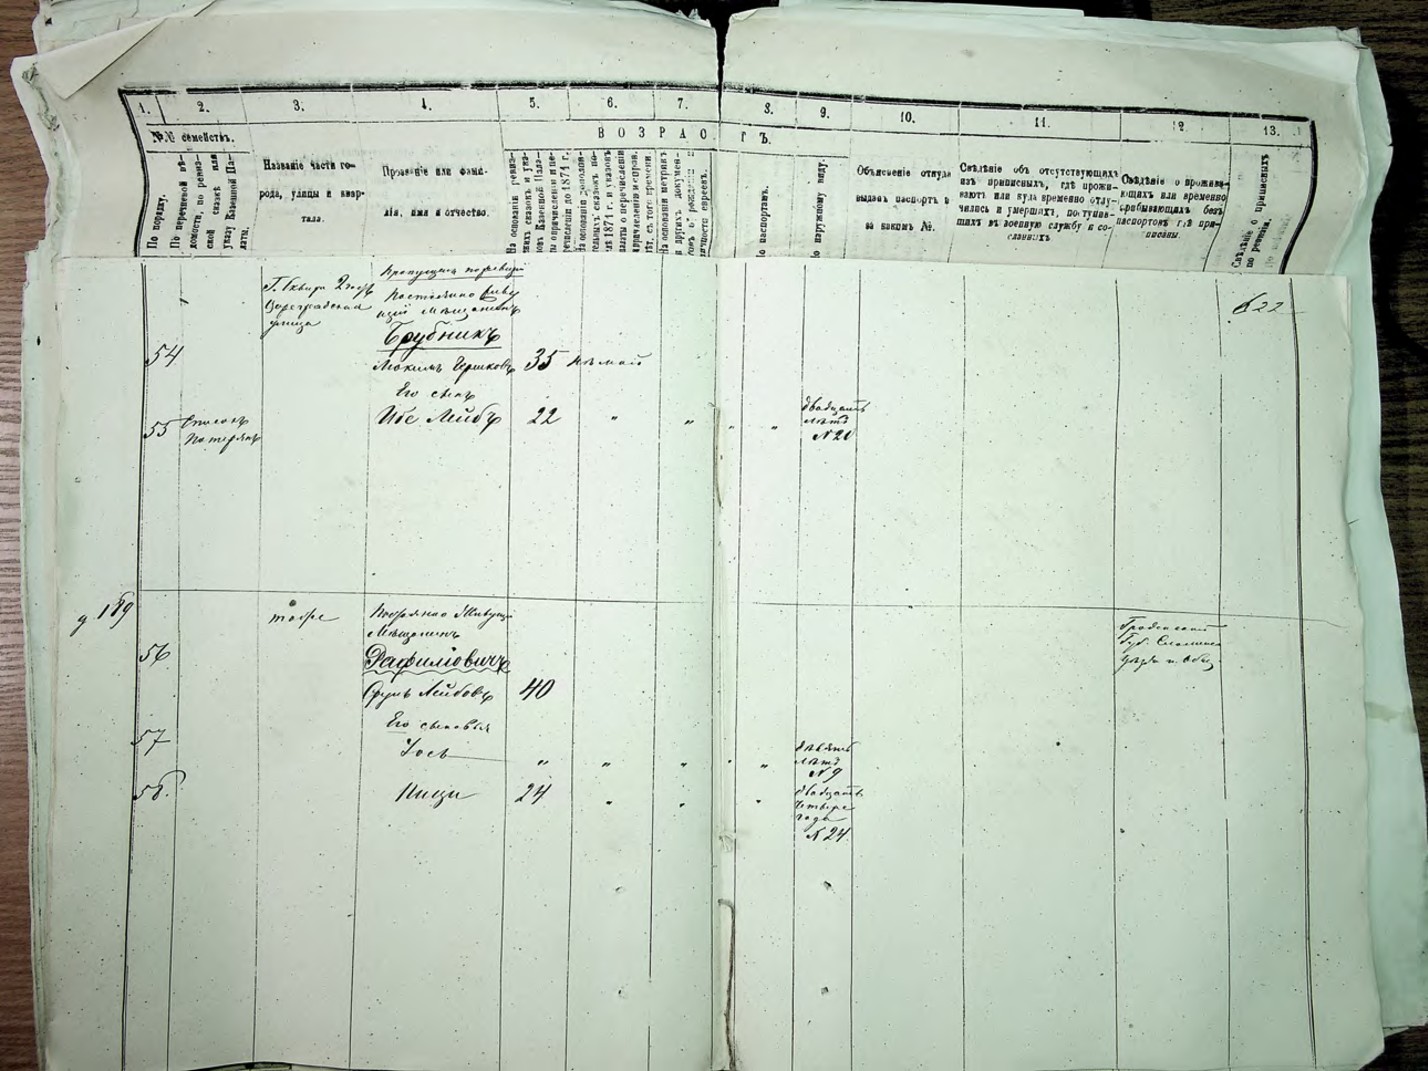 1. 2. 3. 4. 5. 6. 7. 8. 9. 10. 11. 12. 13.
№№ семействъ.
ВОЗРАСТЪ.
По порядку.
По перечневой вѣ-
домости, по ревиз-
ской сказкѣ или
указу Казенной Па-
латы.
Названіе части го-
рода, улицы и квар-
тала.
Прозваніе или фами-
лія, имя и отчество.
На основаніи ревиз-
скихъ сказокъ и ука-
зовъ Казенной Пала-
ты о причисленіи и пе-
речисленіи до 1871 г.
На основаніи дополни-
тельныхъ сказокъ по-
слѣ 1871 г. и указовъ
палаты о перечисленіи
На основаніи метрикъ
и другихъ докумен-
товъ о рожденіи и
личности евреевъ.
По паспортамъ.
По наружному виду.
Объясненіе откуда
выданъ паспортъ и
за какимъ №.
Свѣдѣніе объ отсутствующихъ
изъ приписныхъ, гдѣ прожи-
ваютъ или куда временно отлу-
чились и умершихъ, поступив-
шихъ въ военную службу и со-
сланныхъ
Свѣдѣніе о прожива-
ющихъ или временно
прибывающихъ безъ
паспортовъ гдѣ при-
писаны.
Свѣдѣніе о приписныхъ
по ревизіи,
Г. Сквира 2 часть
Цареградская
улица
Постоянно живу
щій Мѣщанинъ
622
Брубникъ
54 Гершковъ 35
Его сынъ
55 Списокъ
Потерянъ
Ибе Лейбъ 22 " " " "
двадцать
лѣтъ
№ 20
д. 189
тоже
живущій
Мѣщанинъ
Гродненской
Губ. Слонимск
уѣзда
56
Рафиловичъ
Лейбовъ 40
Его сыновья
57 Іось " " " " "
девять
лѣтъ
№ 9
58. 24 " " "
двадцать
четыре
года
№ 24.